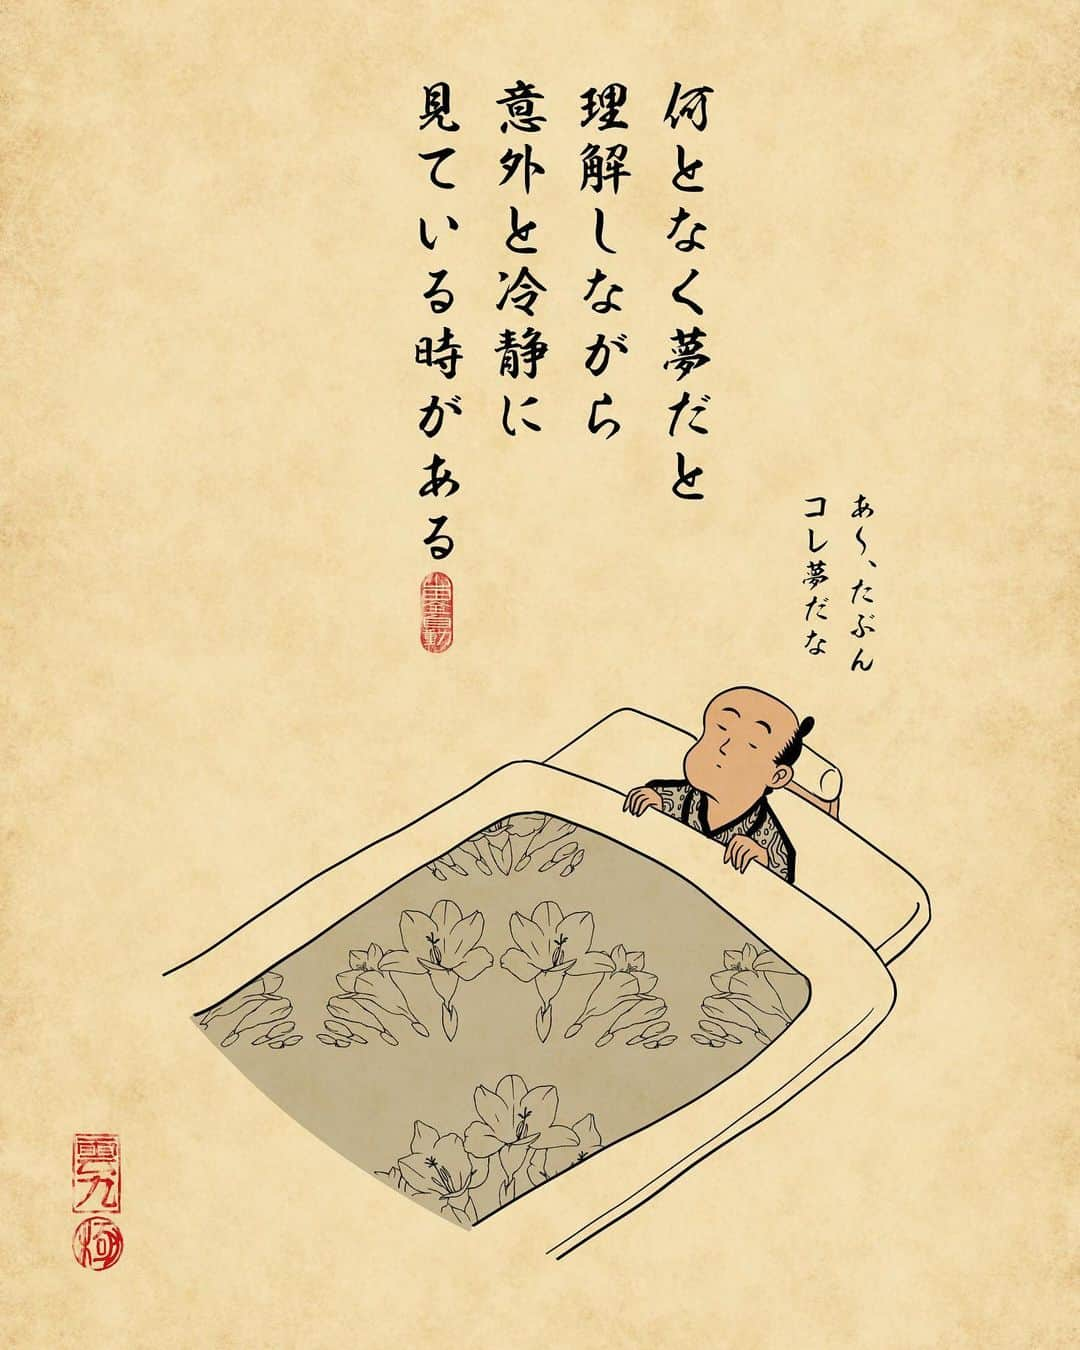 何となく夢だと
理解しながら
意外と冷静に
見ている時がある
あ〜、たぶん
コレ夢だな